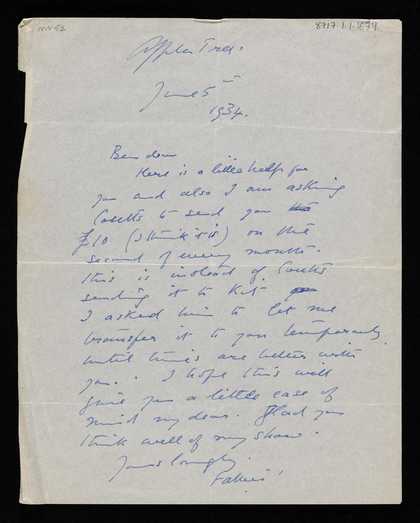 8717.1.1.294
Apple Tree.
June 5th
1934.
Ben dear
Here is a little help for
you and also I am asking
Coutts to send you the
£10 (I think it is) on the
second of every month.
This is instead of Coutts
sending it to Kit
I asked him to let me
transfer it to you temporarily
until times are better with
you. I hope this will
give you a little ease of
mind my dear. Glad you
think well of my show.
Yours lovingly
Father